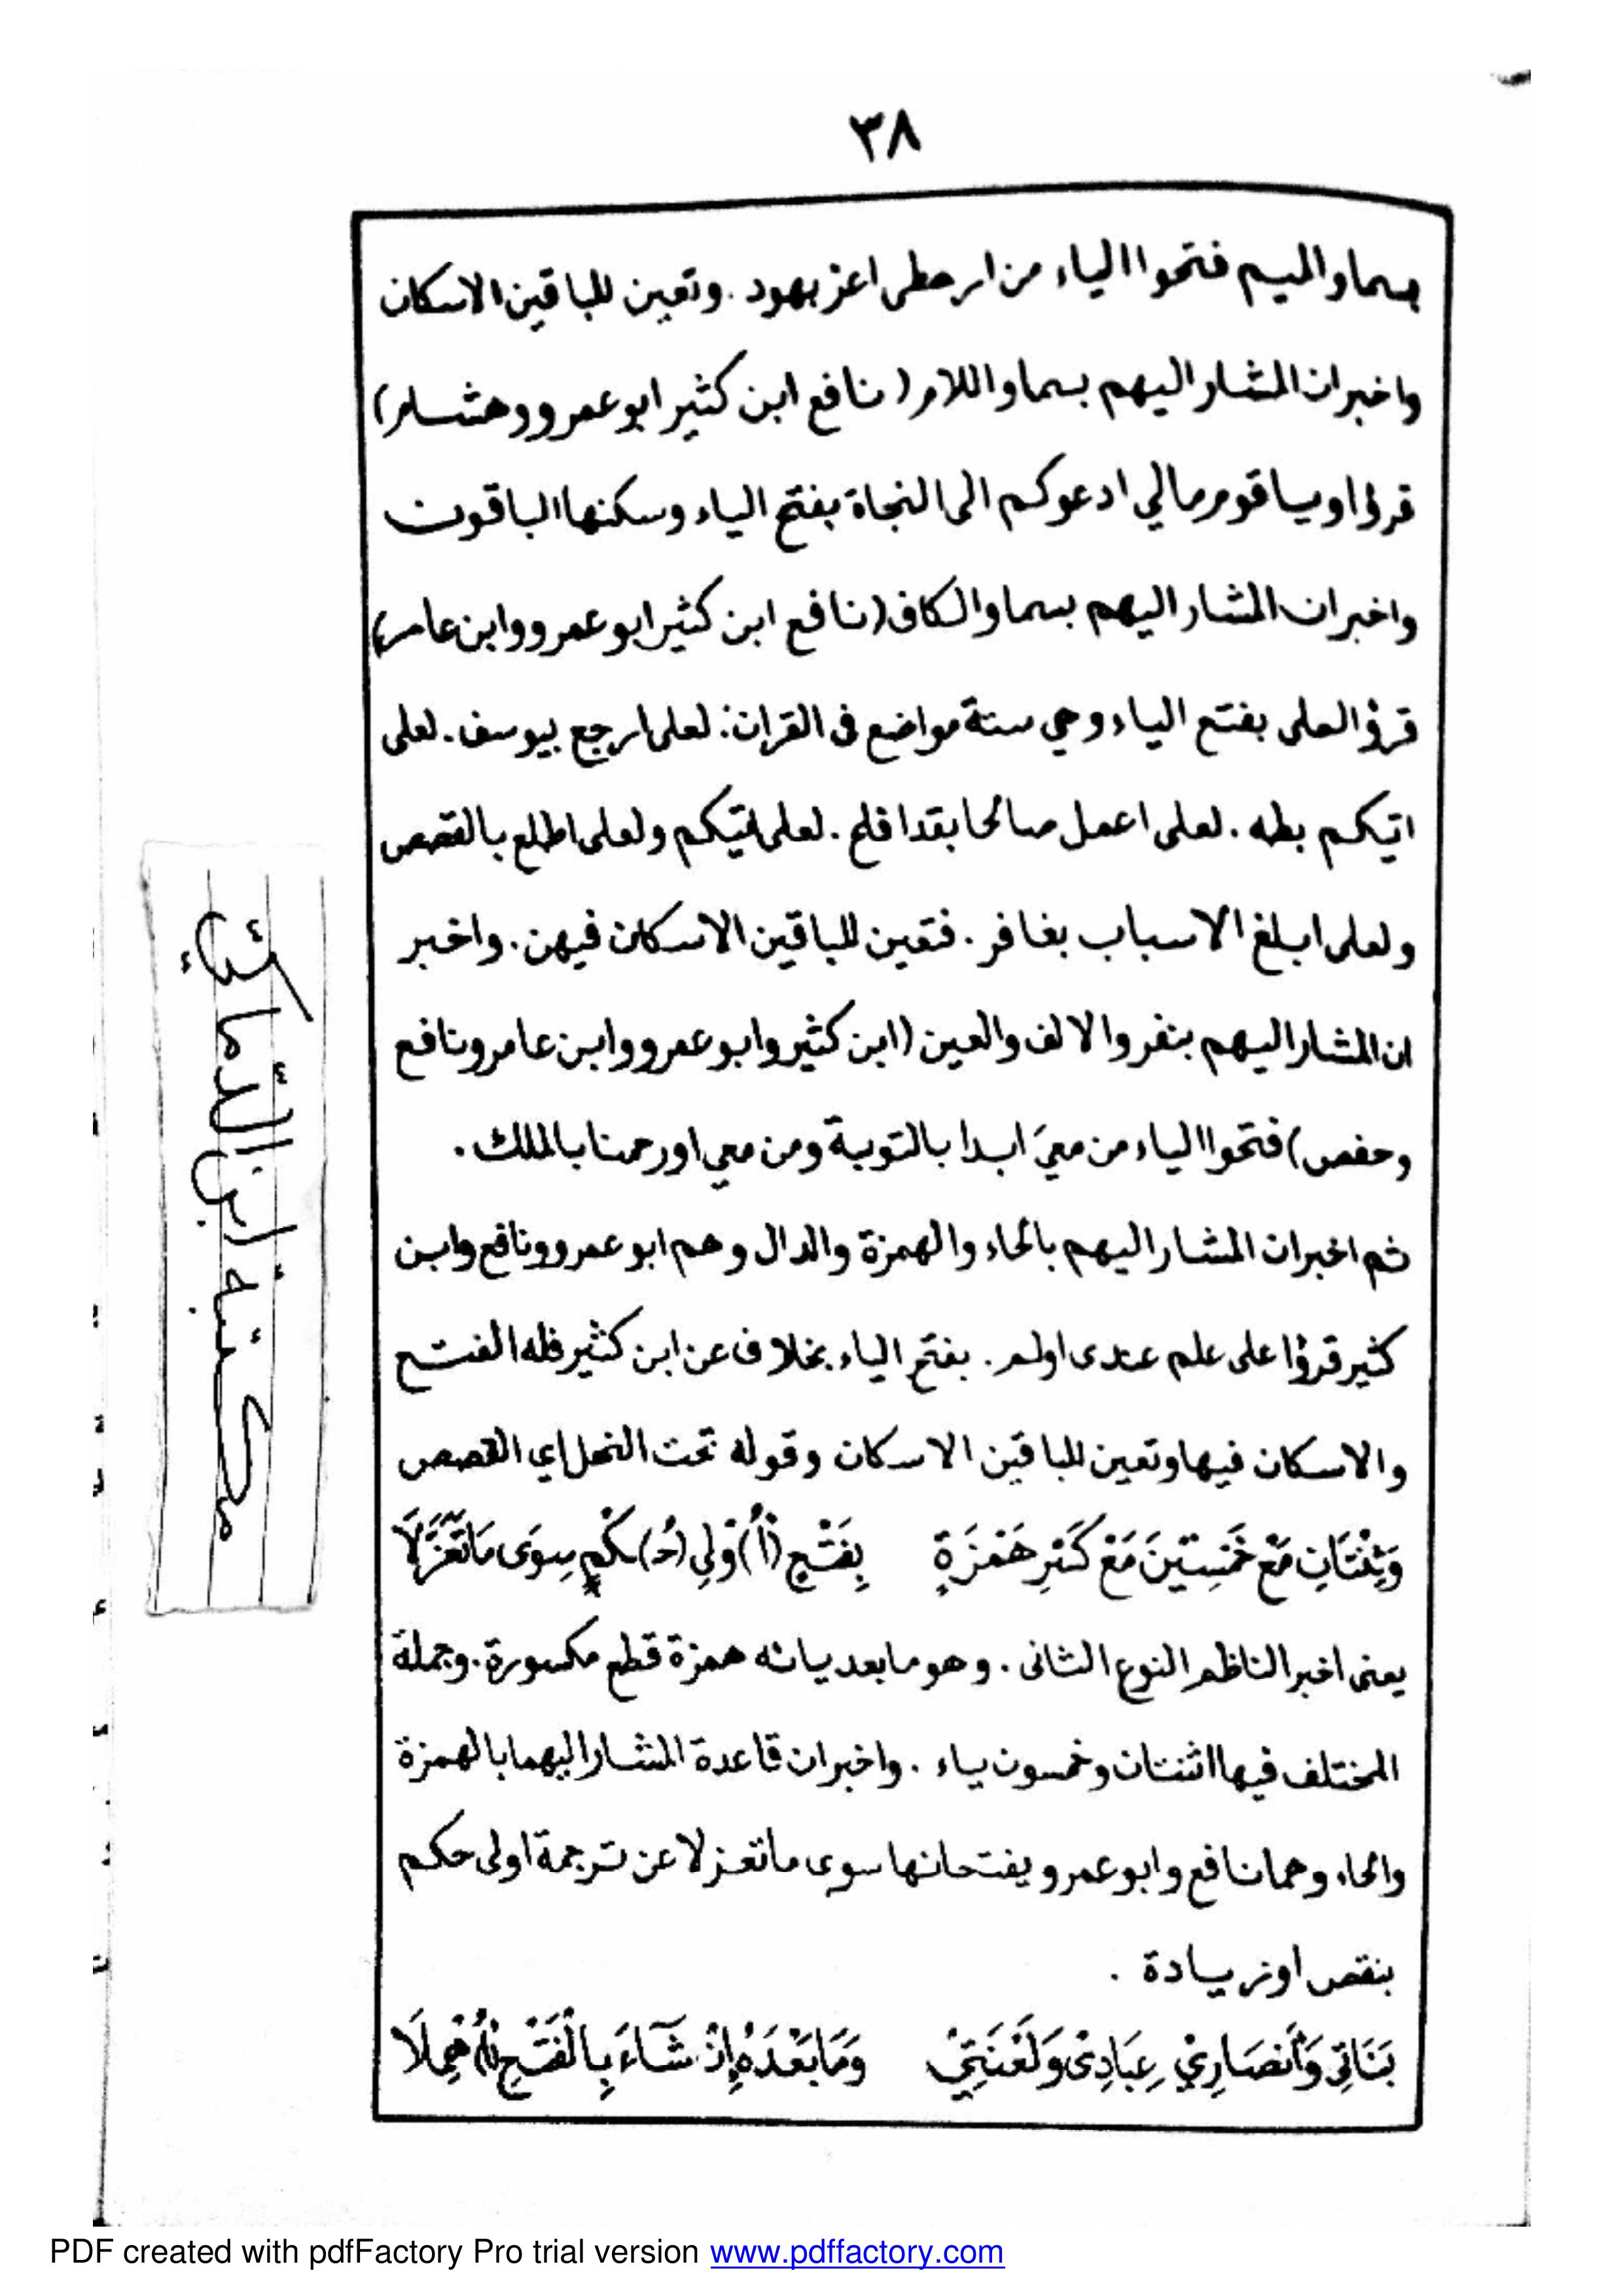 ٣٨
بسما والميم فتحوا الياء من ارهطى اعز بهود . وتعين للباقين الاسكان
واخبر ان المشار اليهم بسما واللام ( نافع ابن كثير ابو عمرو وهشام )
قرؤا ويا قوم مالي ادعوكم الى النجاة بفتح الياء وسكنها الباقون
واخبر ان المشار اليهم بسما والكاف ( نافع ابن كثير ابو عمرو وابن عامر )
قرؤا لعلى بفتح الياء وهي ستة مواضع فى القران : لعلى ارجع بيوسف . لعلى
اتيكم بطه . لعلى اعمل صالحا بقد افلح . لعلى اتيكم ولعلى اطلع بالقصص
ولعلى ابلغ الاسباب بغافر . فتعين للباقين الاسكان فيهن . واخبر
ان المشار اليهم بنفر والالف والعين ( ابن كثير وابو عمرو وابن عامر ونافع
وحفص ) فتحوا الياء من معيَ ابدا بالتوبة ومن معي اورحمنا بالملك .
ثم اخبر ان المشار اليهم بالحاء والهمزة والدال وهم ابو عمرو ونافع وابن
كثير قرؤا على علم عندى اولم . بفتح الياء بخلاف عن ابن كثير فله الفتح
والاسكان فيها وتعين للباقين الاسكان وقوله تحت النمل اي القصص
وَثِنْتَانِ مَعْ خَمْسِيْنَ مَعْ كَسْرِ هَمْزَةٍ بِفَتْحِ (أُ) وْلِي (حُ) كْمٍ سِوَى مَا تَعَزَّلَا
يعنى اخبر الناظم النوع الثانى . وهو ما بعد يائه همزة قطع مكسورة . وجملة
المختلف فيها اثنتان وخمسون ياء . واخبر ان قاعدة المشار اليهما بالهمزة
والحاء وهما نافع وابو عمرو يفتحانها سوى ما تعزلا عن ترجمة اولى حكم
بنقص او زيادة .
بَنَاتِى وَأَنصَارِيْ عِبَادِىْ وَلَعْنَتِيْ وَمَا بَعْدَهُ إِنْ شَآءَ بِالْفَتْحِ أُهْمِلَا
مكتبة ابن الذماري
PDF created with pdfFactory Pro trial version www.pdffactory.com